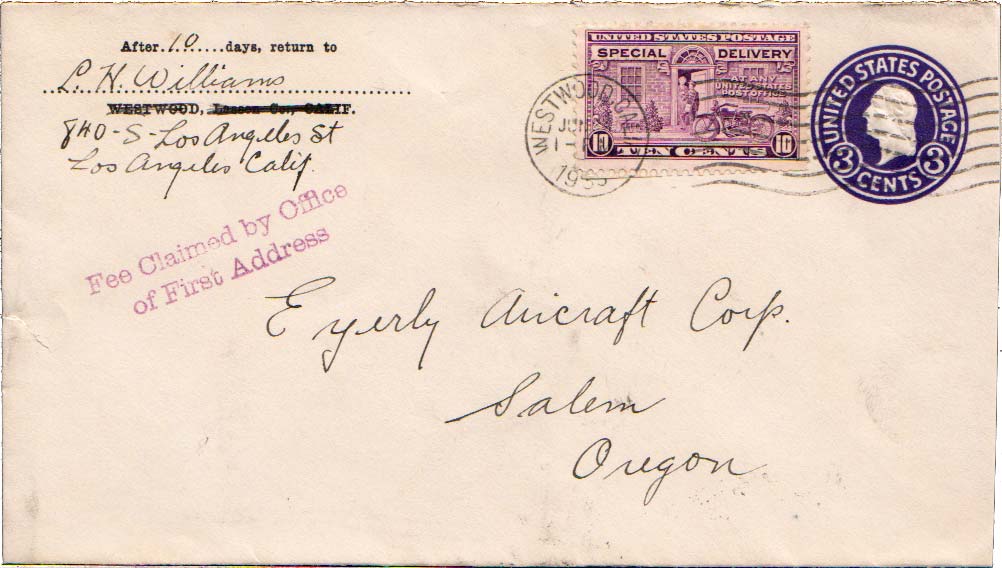 After 10 days, return to
L. H. Williams
WESTWOOD, Lassen Co., CALIF.
840-S-Los Angeles St
Los Angeles Calif.
Fee Claimed by Office
of First Address
UNITED STATES POSTAGE
SPECIAL DELIVERY
AT ANY
UNITED STATES
POST OFFICE
10 TEN CENTS 10
WESTWOOD, CAL
UNITED STATES POSTAGE
3 CENTS 3
Eyerly Aircraft Corp.
Salem
Oregon